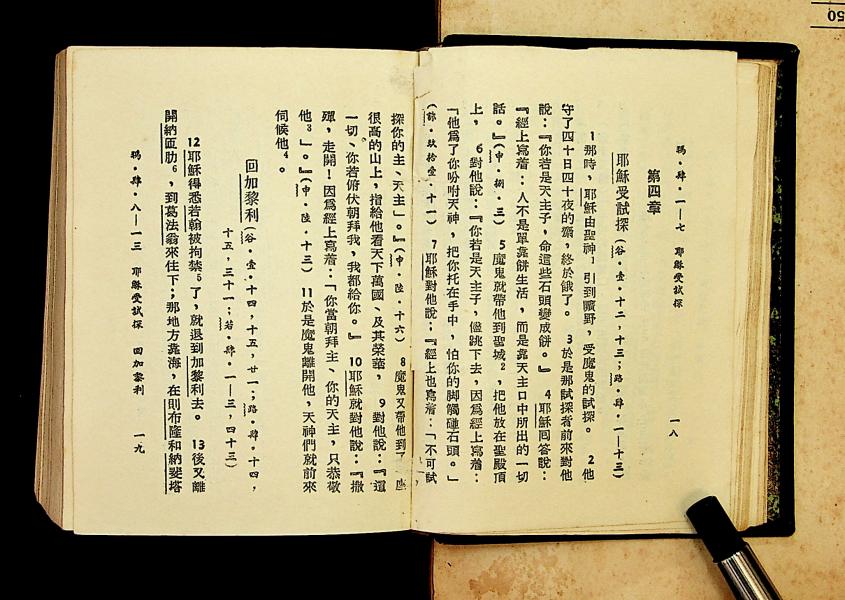 瑪・肆・一—七　耶穌受試探　一八
第四章
耶穌受試探(谷・壹・十二，十三；路・肆・一—十三)
1那時，耶穌由聖神1引到曠野，受魔鬼的試探。　2他
守了四十日四十夜的齋，終於餓了。　3於是那試探者前來對他
說：『你若是天主子，命這些石頭變成餅。』　4耶穌回答說：
『經上寫着：人不是單靠餅生活，而是靠天主口中所出的一切
話。』(申・捌・三)　5魔鬼就帶他到聖城2，把他放在聖殿頂
上，　6對他說：『你若是天主子，儘跳下去，因爲經上寫着：
「他爲了你吩咐天神，把你托在手中，怕你的脚觸碰石頭。」
(詠・玖拾壹・十一)　7耶穌對他說；『經上也寫着：「不可試
探你的主、天主」。』(申・陸・十六)　8魔鬼又帶他到一座
很高的山上，指給他看天下萬國、及其榮華，　9對他說：『這
一切、你若俯伏朝拜我，我都給你。』　10耶穌就對他說：『撒
殫，走開！因爲經上寫着：「你當朝拜主、你的天主，只恭敬
他3」。』(申・陸・十三)　11於是魔鬼離開他，天神們就前來
伺候他4。
回加黎利(谷・壹・十四，十五，廿一；路・肆・十四，
十五，三十一；若・肆・一—三，四十三)
12耶穌得悉若翰被拘禁5了，就退到加黎利去。　13後又離
開納匝肋6，到葛法翁來住下；那地方靠海，在則布隆和納斐塔
瑪・肆・八—一三　耶穌受試探　回加黎利　一九
50